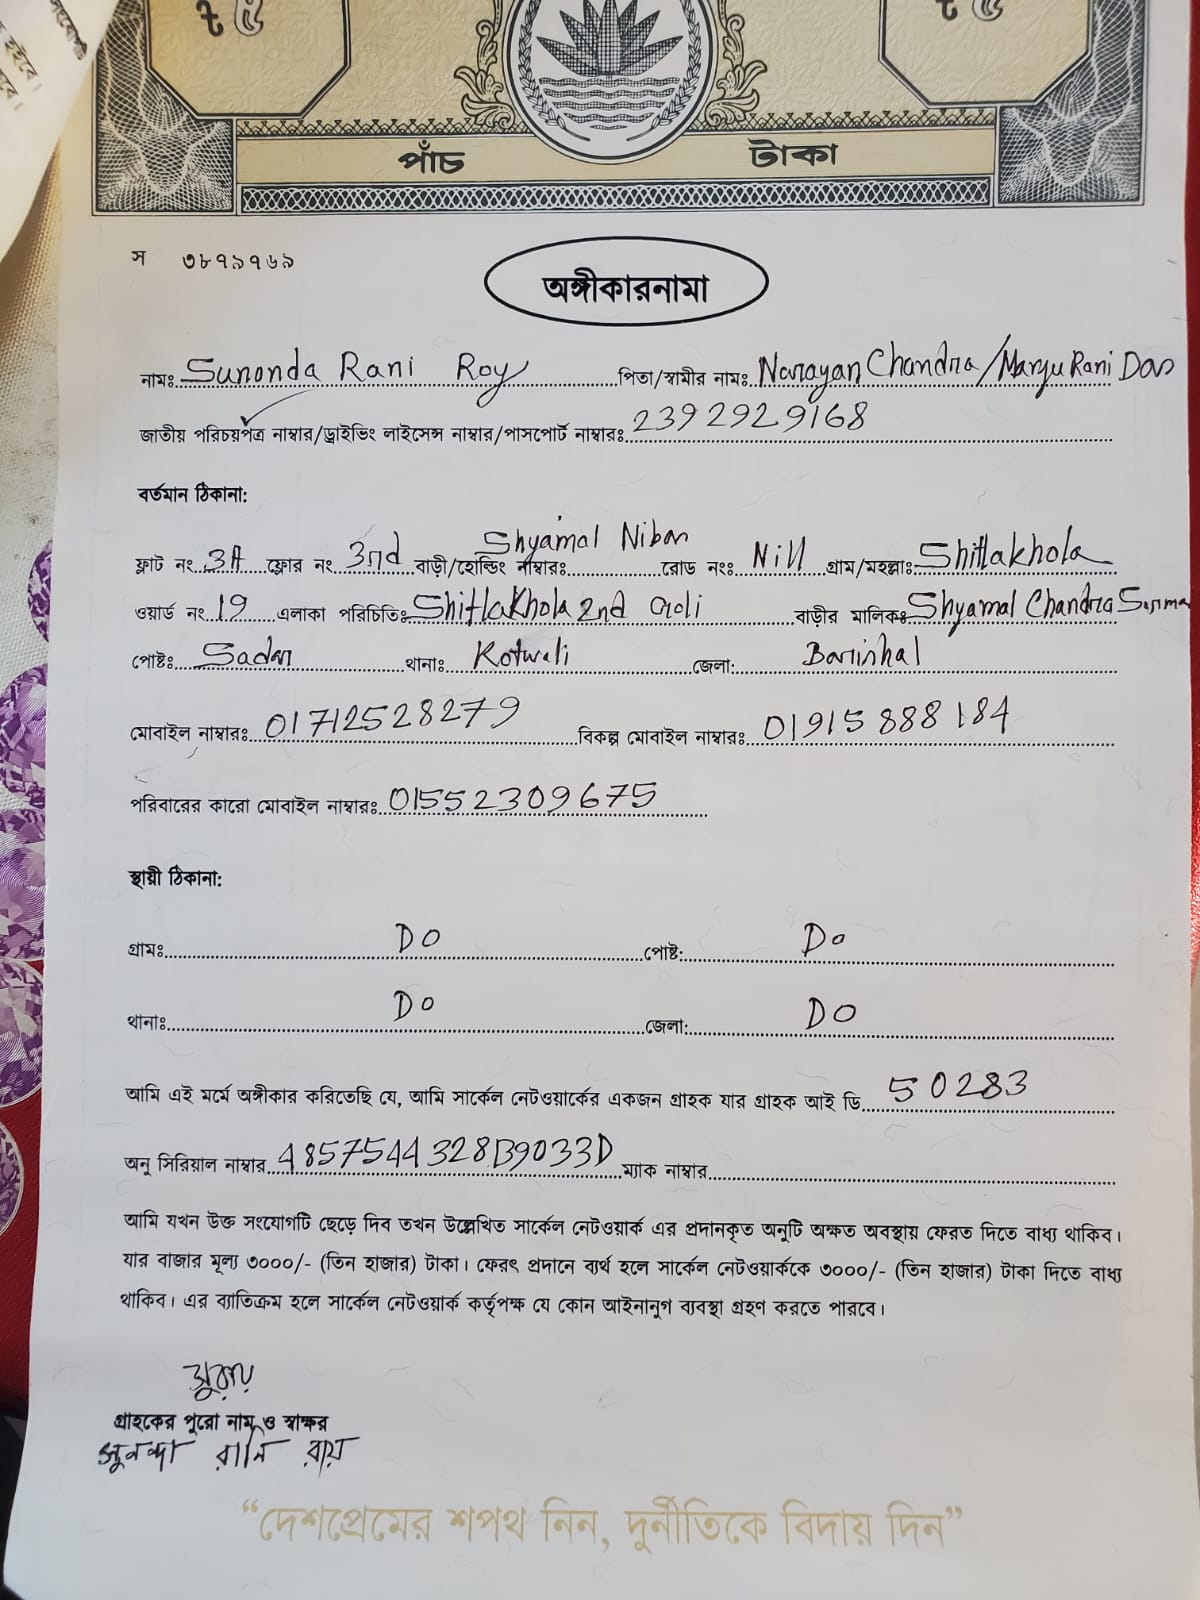 ৳ ৫ ৳ ৫
পাঁচ টাকা
স ৩৮৭৯৭৬৯
অঙ্গীকারনামা
নামঃ Sunonda Rani Roy পিতা/স্বামীর নামঃ Narayan Chandra/Manju Rani Das
জাতীয় পরিচয়পত্র নাম্বার/ড্রাইভিং লাইসেন্স নাম্বার/পাসপোর্ট নাম্বারঃ 2392929168
বর্তমান ঠিকানা:
ফ্লাট নং 3A ফ্লোর নং 3nd বাড়ী/হোল্ডিং নাম্বারঃ Shyamal Niban রোড নংঃ Nill গ্রাম/মহল্লাঃ Shitlakhola
ওয়ার্ড নং 19 এলাকা পরিচিতিঃ Shitlakhola 2nd Goli বাড়ীর মালিকঃ Shyamal Chandra Sarma
পোষ্টঃ Sadar থানাঃ Kotwali জেলা: Barishal
মোবাইল নাম্বারঃ 01712528279 বিকল্প মোবাইল নাম্বারঃ 01915888184
পরিবারের কারো মোবাইল নাম্বারঃ 01552309675
স্থায়ী ঠিকানা:
গ্রামঃ DO পোষ্ট: Do
থানাঃ DO জেলা: DO
আমি এই মর্মে অঙ্গীকার করিতেছি যে, আমি সার্কেল নেটওয়ার্কের একজন গ্রাহক যার গ্রাহক আই ডি 50283
অনু সিরিয়াল নাম্বার 4857544328B9033D ম্যাক নাম্বার
আমি যখন উক্ত সংযোগটি ছেড়ে দিব তখন উল্লেখিত সার্কেল নেটওয়ার্ক এর প্রদানকৃত অনুটি অক্ষত অবস্থায় ফেরত দিতে বাধ্য থাকিব।
যার বাজার মূল্য ৩০০০/- (তিন হাজার) টাকা। ফেরৎ প্রদানে ব্যর্থ হলে সার্কেল নেটওয়ার্ককে ৩০০০/- (তিন হাজার) টাকা দিতে বাধ্য
থাকিব। এর ব্যাতিক্রম হলে সার্কেল নেটওয়ার্ক কর্তৃপক্ষ যে কোন আইনানুগ ব্যবস্থা গ্রহণ করতে পারবে।
গ্রাহকের পুরো নাম ও স্বাক্ষর
সুনন্দা রানি রায়
“দেশপ্রেমের শপথ নিন, দুর্নীতিকে বিদায় দিন”